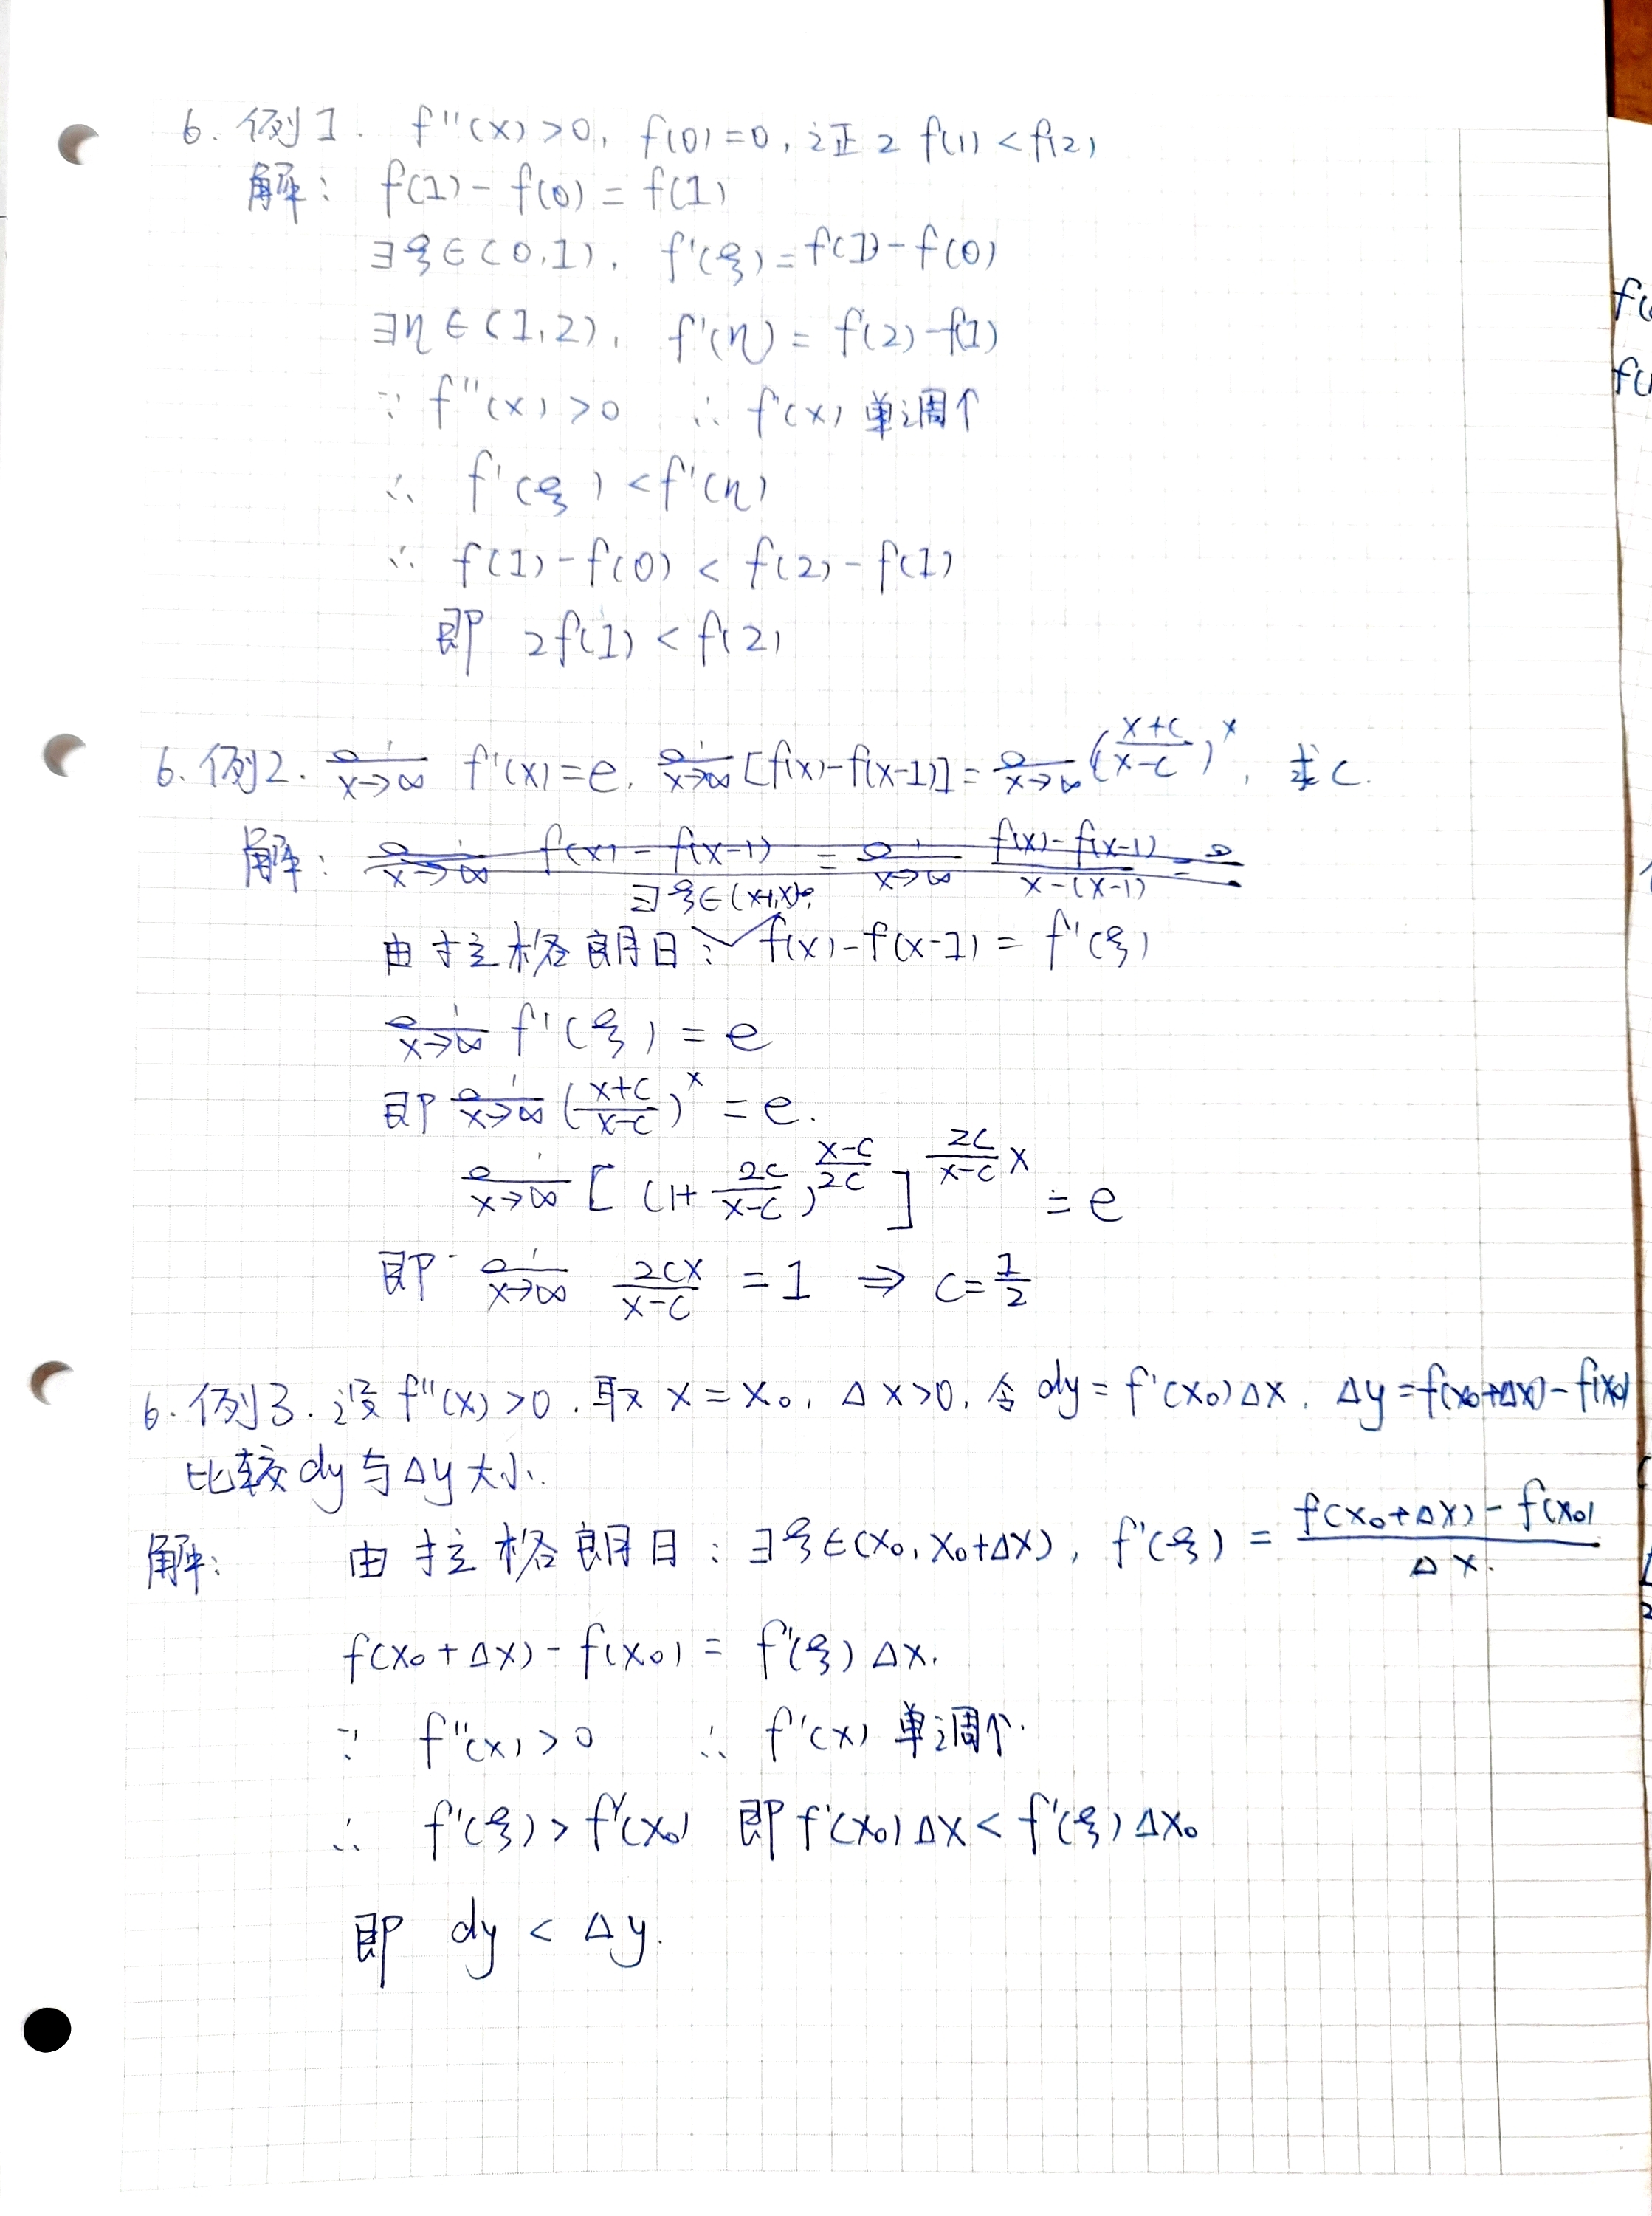 6. 例1. f''(x)>0, f(0)=0, 证 2f(1)<f(2)
解: f(1)-f(0)=f(1)
∃ξ∈(0,1), f'(ξ)=f(1)-f(0)
∃η∈(1,2), f'(η)=f(2)-f(1)
∵ f''(x)>0 ∴ f'(x) 单调↑
∴ f'(ξ)<f'(η)
∴ f(1)-f(0)<f(2)-f(1)
即 2f(1)<f(2)
6. 例2. lim x→∞ f'(x)=e, lim x→∞ [f(x)-f(x-1)]=lim x→∞ ((x+c)/(x-c))^x, 求c.
解: lim x→∞ f(x)-f(x-1) = lim x→∞ (f(x)-f(x-1))/(x-(x-1)) =
∃ξ∈(x-1,x),
由拉格朗日: f(x)-f(x-1)=f'(ξ)
lim x→∞ f'(ξ)=e
即 lim x→∞ ((x+c)/(x-c))^x = e.
lim x→∞ [(1+2c/(x-c))^((x-c)/2c)]^(2c/(x-c) x) = e
即 lim x→∞ 2cx/(x-c) = 1 ⇒ c=1/2
6. 例3. 设 f''(x)>0. 取 x=x₀, Δx>0, 令 dy=f'(x₀)Δx, Δy=f(x₀+Δx)-f(x₀)
比较dy与Δy大小.
解: 由拉格朗日: ∃ξ∈(x₀, x₀+Δx), f'(ξ)=(f(x₀+Δx)-f(x₀))/Δx.
f(x₀+Δx)-f(x₀)=f'(ξ)Δx.
∵ f''(x)>0 ∴ f'(x) 单调↑.
∴ f'(ξ)>f'(x₀) 即 f'(x₀)Δx<f'(ξ)Δx₀
即 dy<Δy.